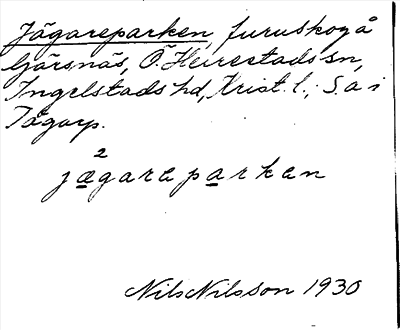 Jägareparken, furuskog å
Gärsnäs, Ö. Herrestads sn,
Ingelstads hd, Krist. l.; S. a i
Tågarp.
2
jägareparken
Nils Nilsson 1930